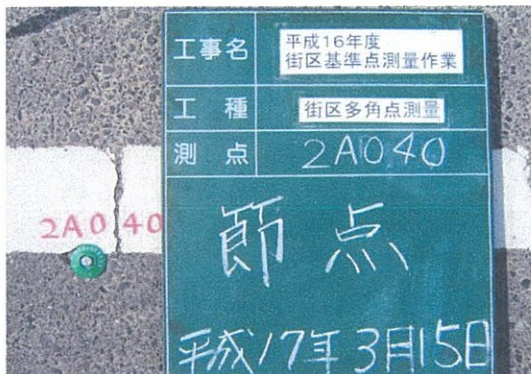 工事名
平成16年度
街区基準点測量作業
工種
街区多角点測量
測点
2A040
2A040
節点
平成17年3月15日